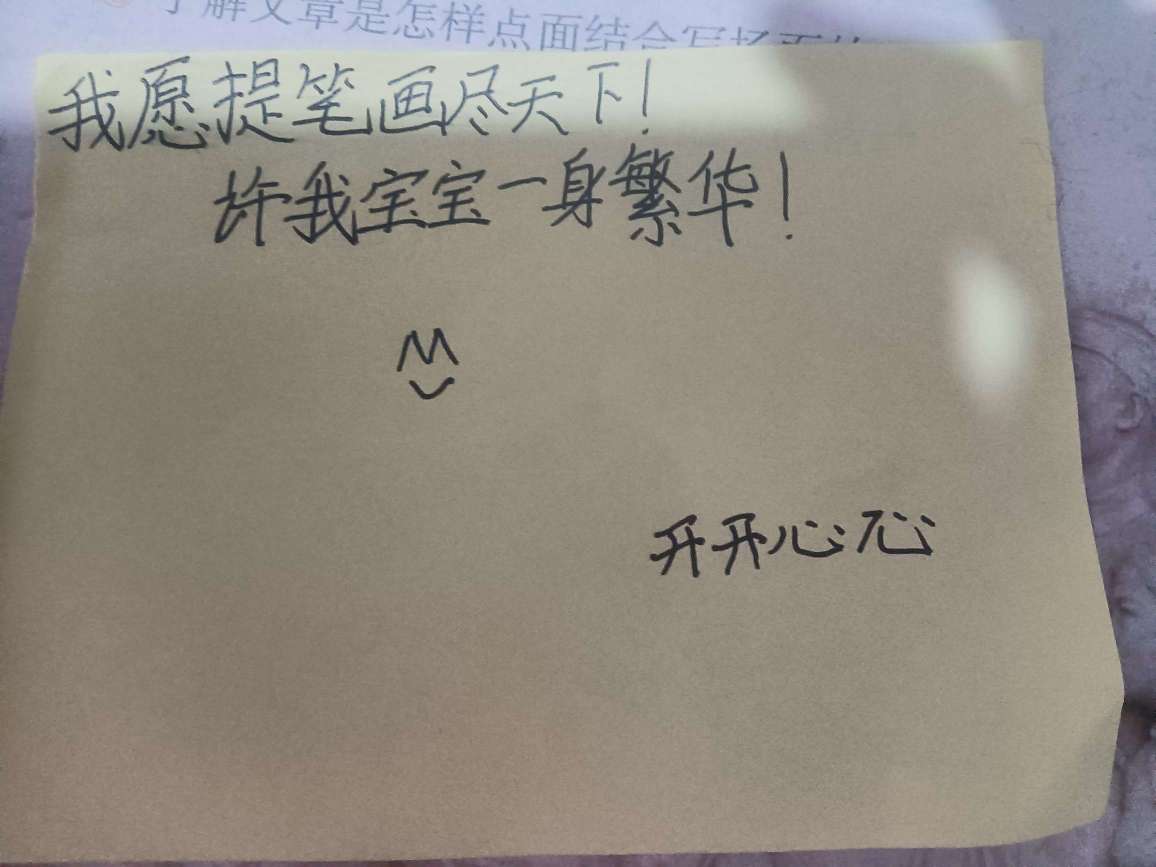 了解文章是怎样点面结合写场面的
我愿提笔画尽天下!
许我宝宝一身繁华!
开开心心